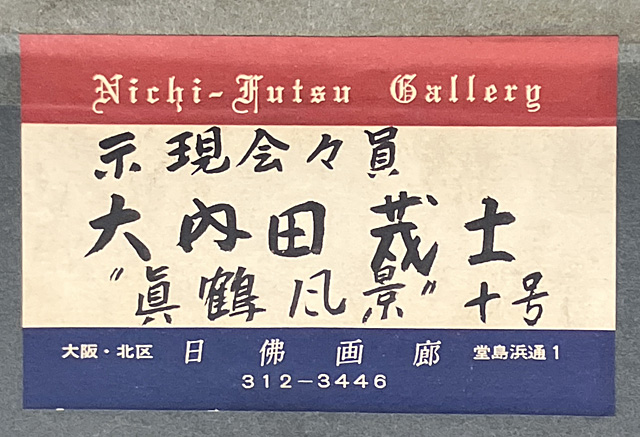 Nichi-Futsu Gallery
示現会々員
大内田茂士
"眞鶴風景" 十号
大阪・北区 日佛画廊 堂島浜通1
312-3446